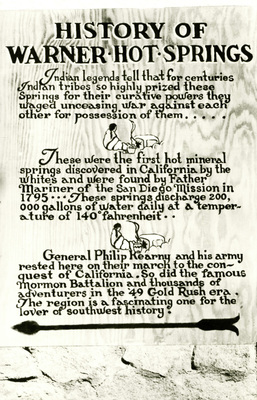 HISTORY OF
WARNER·HOT·SPRINGS
Indian legends tell that for centuries
Indian tribes so highly prized these
Springs for their curative powers they
waged unceasing war against each
other for possession of them . . . . .
These were the first hot mineral
springs discovered in California by the
whites and were found by Father
Mariner of the San Diego Mission in
1795 · · · These springs discharge 200,
000 gallons of water daily at a temper-
ature of 140° fahrenheit · ·
General Philip Kearny and his army
rested here on their march to the con-
quest of California. So did the famous
Mormon Battalion and thousands of
adventurers in the '49 Gold Rush era.
The region is a fascinating one for the
lover of southwest history ·